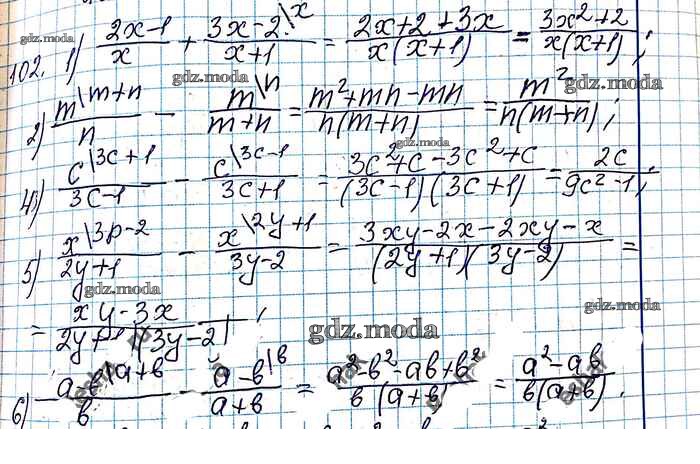 gdz.moda
102. 1) \frac{2x-1}{x} + \frac{3x-2 \backslash x}{x+1} = \frac{2x+2+3x}{x(x+1)} = \frac{3x^2+2}{x(x+1)};
gdz.moda gdz.moda
2) \frac{m \backslash m+n}{n} - \frac{m \backslash n}{m+n} = \frac{m^2+mn-mn}{n(m+n)} = \frac{m^2}{n(m+n)};
gdz.moda gdz.moda
4) \frac{c \backslash 3c+1}{3c-1} - \frac{c \backslash 3c-1}{3c+1} = \frac{3c^2+c-3c^2+c}{(3c-1)(3c+1)} = \frac{2c}{9c^2-1};
gdz.moda
5) \frac{x \backslash 3p-2}{2y+1} - \frac{x \backslash 2y+1}{3y-2} = \frac{3xy-2x-2xy-x}{(2y+1)(3y-2)} =
gdz.moda gdz.moda
= \frac{xy-3x}{2y+1)(3y-2)};
gdz.moda
6) \frac{a-b \backslash a+b}{b} - \frac{a-b \backslash b}{a+b} = \frac{a^2-b^2-ab+b^2}{b(a+b)} = \frac{a^2-ab}{b(a+b)}.